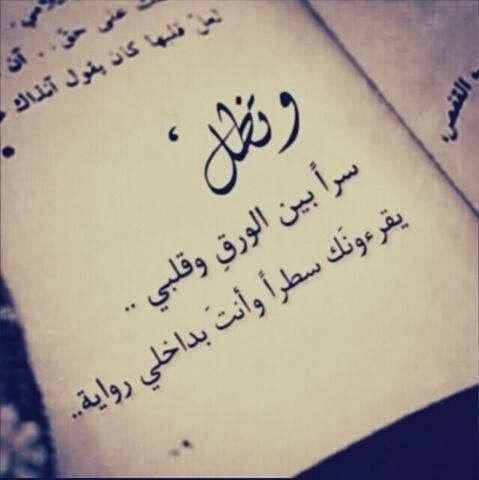 على حق .. آن
لعل قلبها كان يقول آنذاك
وتظل ،
سراً بين الورقِ وقلبي ..
يقرءونَك سطراً وأنتَ بداخلي رواية..